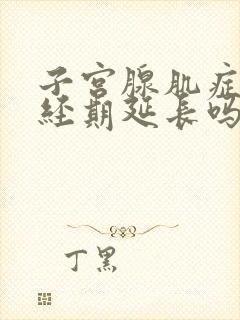 子宫腺肌症
经期延长吗
丁黑